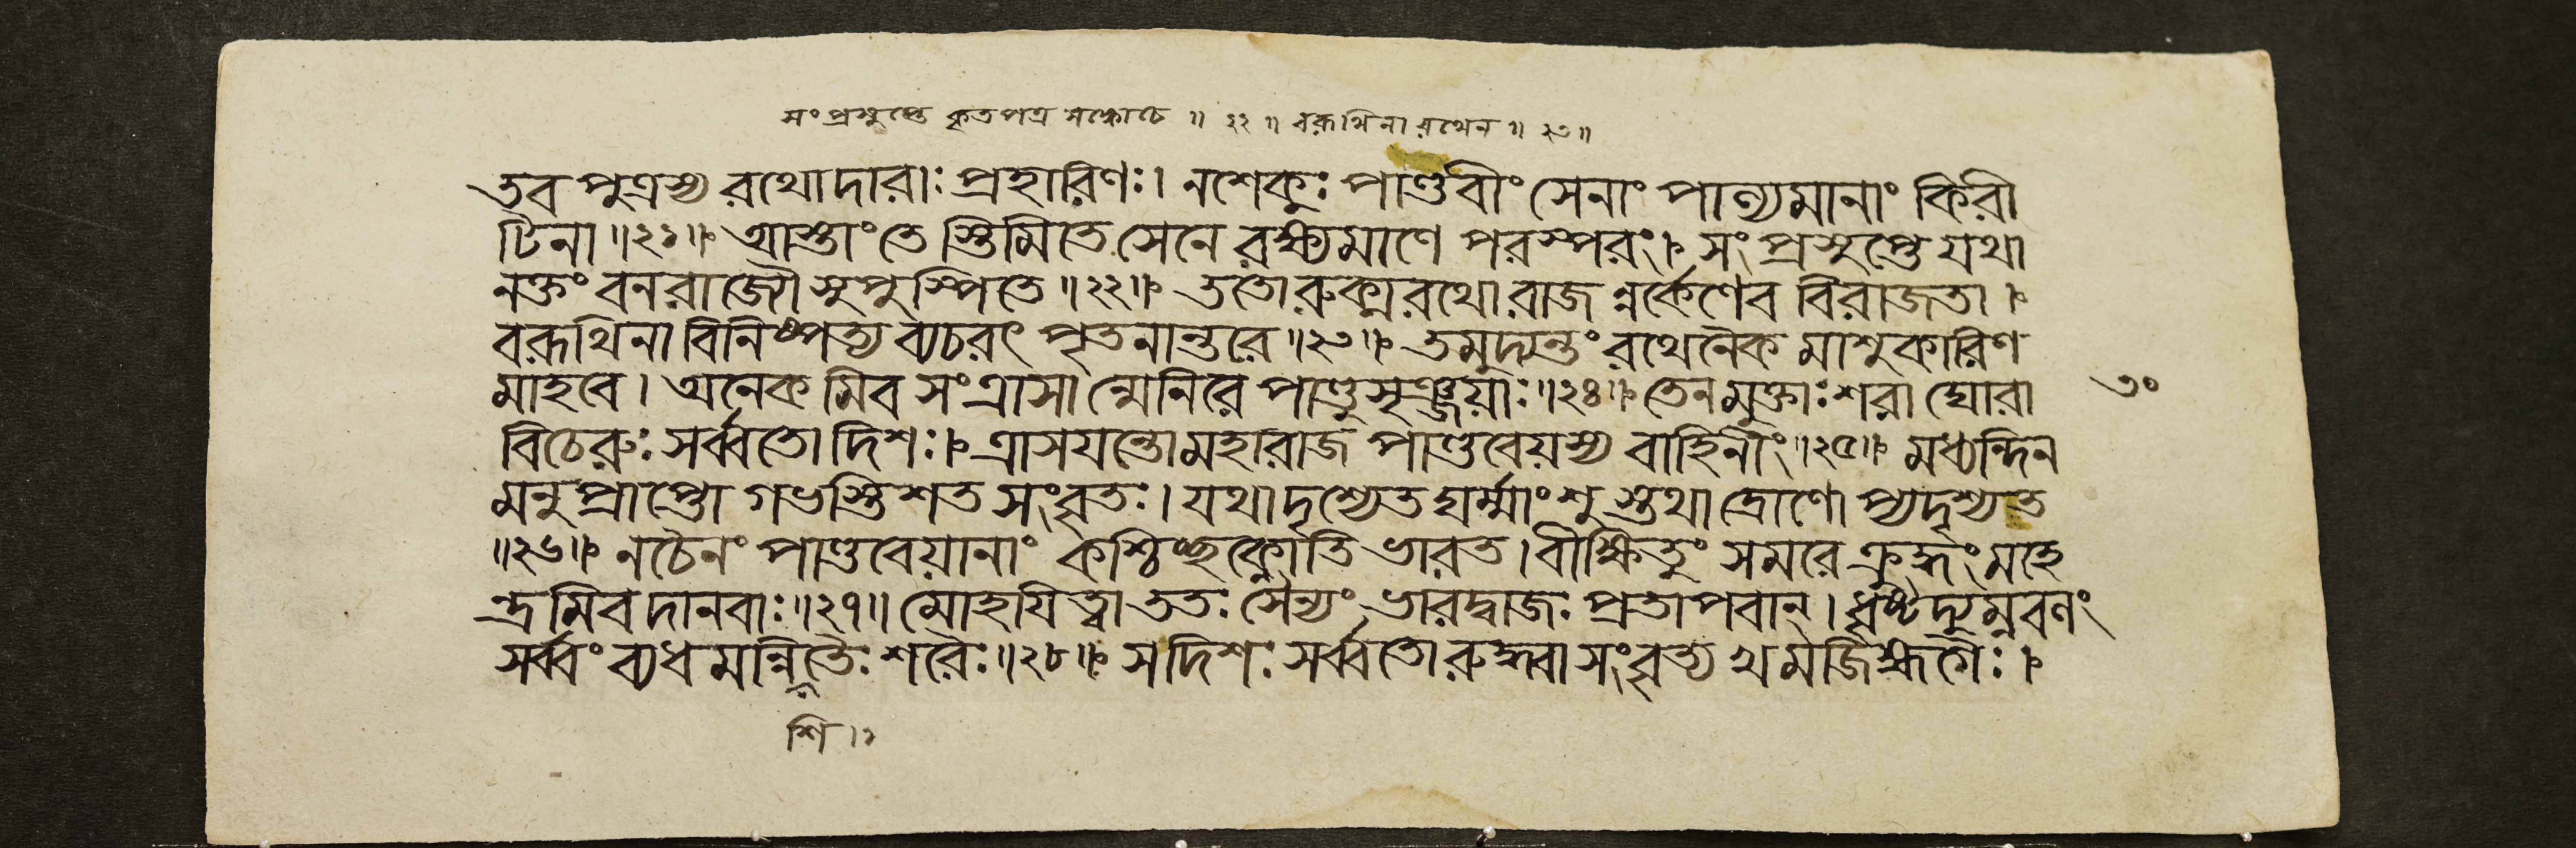 সংপ্রসুপ্তে কৃতপত্র সঙ্কোচে ॥ ২২ ॥ বরূথিনা রথেন ॥ ২৩॥
তব পুত্রস্য রথোদারাঃ প্রহারিণঃ। নশেকুঃ পাণ্ডবীং সেনাং পাল্যমানাং কিরী
টিনা ॥২১॥ আস্তাং তে স্তিমিতে সেনে রক্ষ্যমাণে পরস্পরং। সং প্রসুপ্তে যথা
নক্তং বনরাজৌ সুপুস্পিতে ॥২২॥ ততোরুক্মরথোরাজ ন্নর্কেণেব বিরাজতা।
বরূথিনা বিনিষ্পত্য ব্যচরৎ পৃতনান্তরে ॥২৩॥ তমুদ্যন্তং রথেনৈক মাশুকারিণ
মাহবে। অনেক মিব সংত্রাসা ন্মেনিরে পাণ্ডুসৃঞ্জয়াঃ ॥২৪॥ তেনমুক্তাঃ শরা ঘোরা ৩০
বিচেরুঃ সর্ব্বতো দিশঃ। ত্রাসযন্তোমহারাজ পাণ্ডবেয়স্য বাহিনীং ॥২৫॥ মধ্যন্দিন
মনু প্রাপ্তো গভস্তিশত সংবৃতঃ। যথাদৃশ্যেত ঘর্ম্মাংশু স্তথাদ্রোণো প্যদৃশ্যত
॥২৬॥ নচৈনং পাণ্ডবেয়ানাং কশ্চিচ্ছক্নোতি ভারত। বীক্ষিতুং সমরে ক্রুদ্ধং মহে
ন্দ্রমিব দানবাঃ ॥২৭॥ মোহাযিত্বা ততঃ সৈন্যং ভারদ্বাজঃ প্রতাপবান্। ধৃষ্টদ্যুম্নবলং
সর্ব্বং ব্যধমন্নিতৈঃ শরৈঃ ॥২৮॥ সদিশঃ সর্ব্বতোরুদ্ধ্বা সংবৃত্য খমজিহ্মগৈঃ।
শি।১